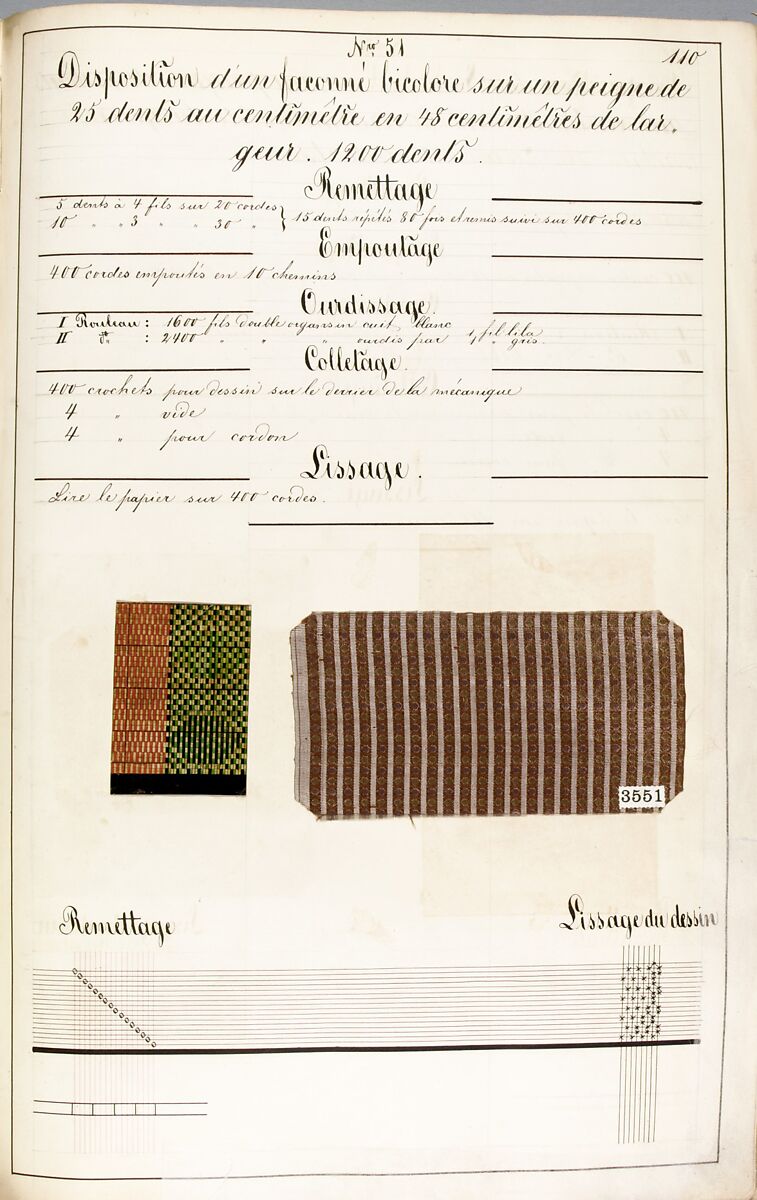 Nro 51
110
Disposition d'un façonné bicolore sur un peigne de
25 dents au centimètre en 48 centimètres de lar-
geur. 1200 dents.
Remettage
5 dents à 4 fils sur 20 cordes
10 " " 3 " " 30 " } 15 dents répétés 80 fois et remis suivi sur 400 cordes
Empoutage
400 cordes empoutés en 10 chemins
Ourdissage.
I Rouleau : 1600 fils double organsin cuit, blanc
II dto : 2400 " " " ourdis par 1 fil lila
1 " gris.
Colletage.
400 crochets pour dessin sur le derrier de la mécanique
4 " vide
4 " pour cordon
Lissage.
Lire le papier sur 400 cordes.
3551
Remettage
Lissage du dessin